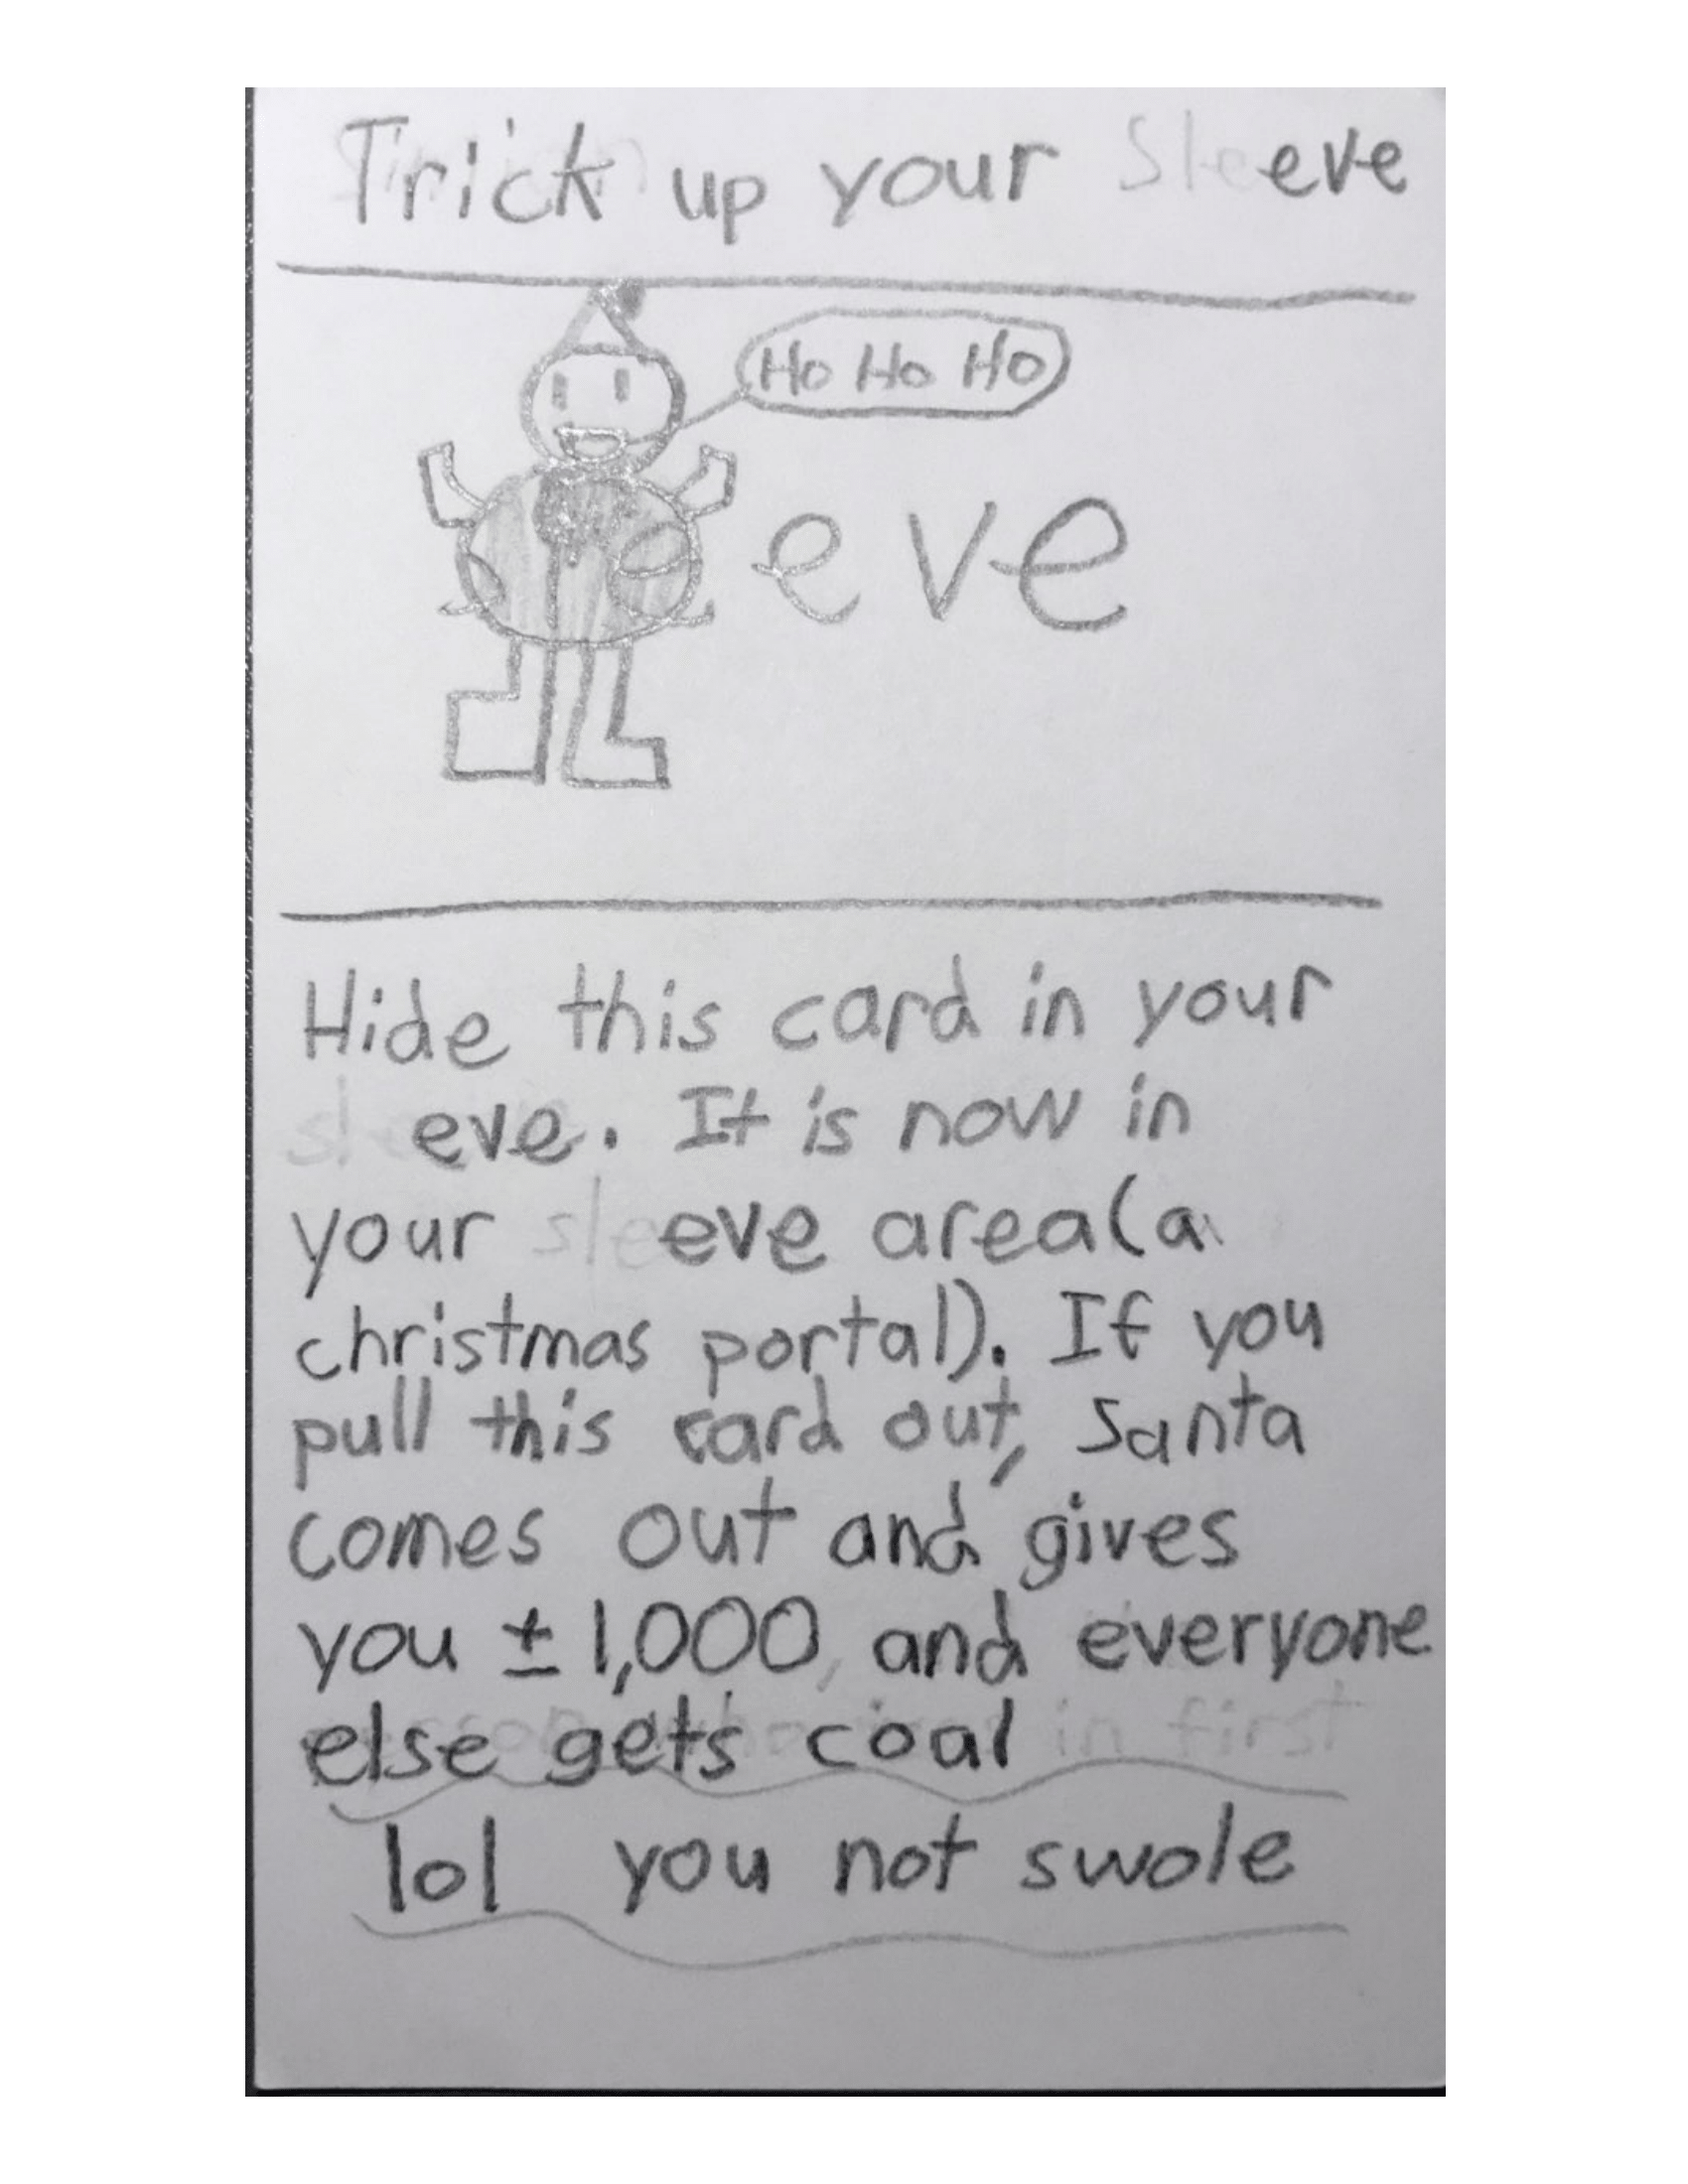 Trick up your Sleeve
Ho Ho Ho
eve
Hide this card in your
eve. It is now in
your sleeve area(a
christmas portal). If you
pull this card out, Santa
comes out and gives
you ± 1,000, and everyone
else gets coal in first
lol you not swole